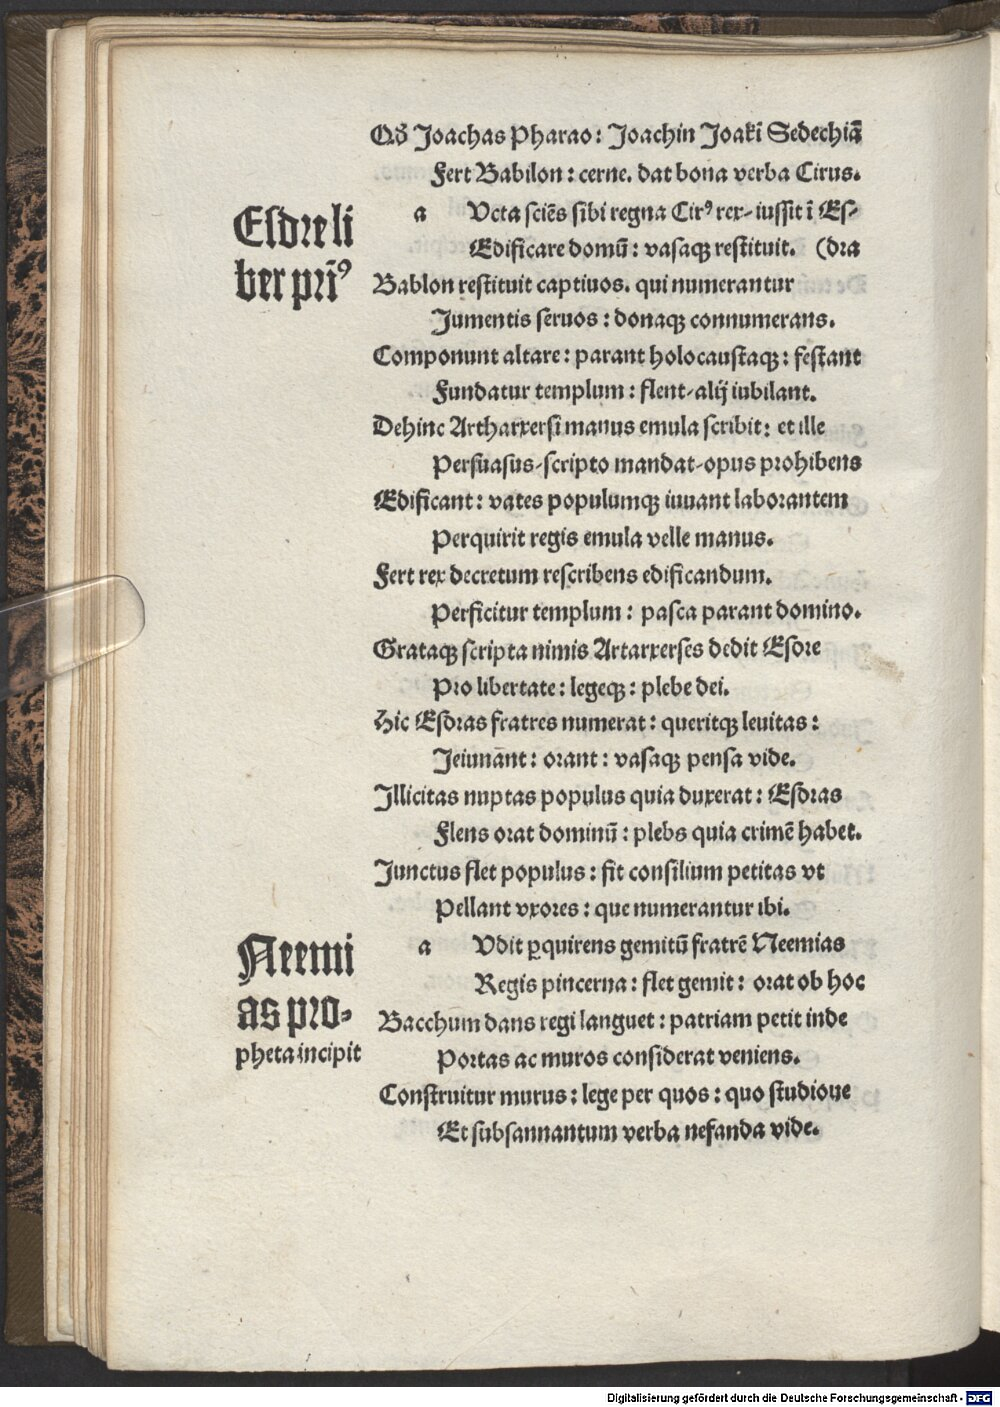 Qđ Joachas Pharao: Joachin Joakī Sedechiā
Fert Babilon: cerne. dat bona verba Cirus.
Esdre li
ber prīꝰ
a Ucta sciēs sibi regna Cirꝰ rex/ iussit ī Es/
Edificare domū: vasaqꝫ restituit. (dra
Bablon restituit captiuos. qui numerantur
Jumentis seruos: donaqꝫ connumerans.
Componunt altare: parant holocaustaqꝫ: festant
Fundatur templum: flent/ alij iubilant.
Dehinc Artharxersi manus emula scribit: et ille
Persuasus/ scripto mandat/ opus prohibens
Edificant: vates populumqꝫ iuuant laborantem
Perquirit regis emula velle manus.
Fert rex decretum rescribens edificandum.
Perficitur templum: pasca parant domino.
Grataqꝫ scripta nimis Artarxerses dedit Esdre
Pro libertate: legeqꝫ: plebe dei.
Hic Esdras fratres numerat: queritqꝫ leuitas:
Jeiunānt: orant: vasaqꝫ pensa vide.
Illicitas nuptas populus quia duxerat: Esdras
Flens orat dominū: plebs quia crimē habet.
Junctus flet populus: fit consilium petitas vt
Pellant vxores: que numerantur ibi.
Neemi
as pro-
pheta incipit
a Udit ꝑquirens gemitū fratrē Neemias
Regis pincerna: flet gemit: orat ob hoc
Bacchum dans regi languet: patriam petit inde
Portas ac muros considerat veniens.
Construitur murus: lege per quos: quo studioue
Et subsannantum verba nefanda vide.
Digitalisierung gefördert durch die Deutsche Forschungsgemeinschaft - DFG